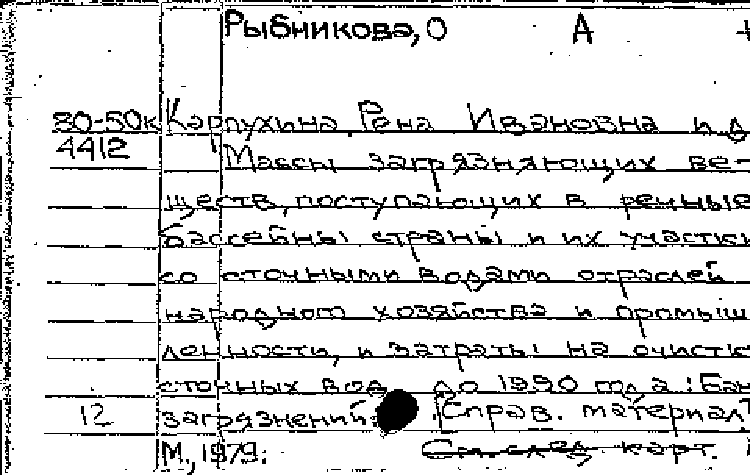 Рыбникова, О А
80-50к Карпухина Рена Ивановна и д
4412 Массы загрязняющих ве-
ществ, поступающих в речные
бассейны страны и их участки
со сточными водами отраслей
народного хозяйства и промыш
ленности, и затраты на очистк
сточных вод до 1990 года: Бан
12 загрязнений. [Справ. материал]
М., 1979. См. след. карт.